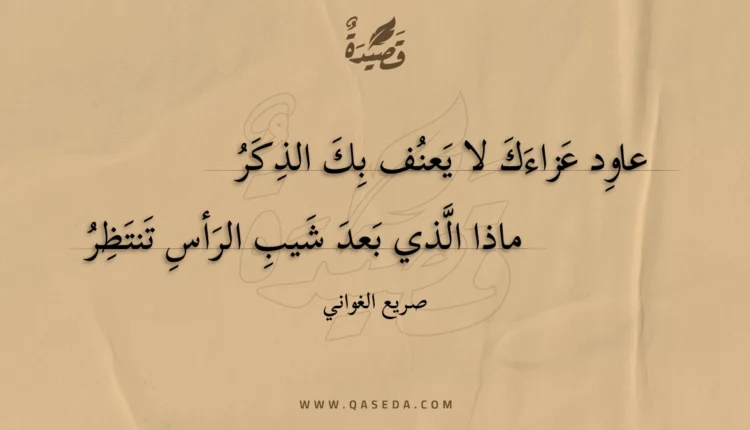 قَصِيدَةٌ
عاوِد عَزاءَكَ لا يَعنُف بِكَ الذِكَرُ
ماذا الَّذي بَعدَ شَيبِ الرَأسِ تَنتَظِرُ
صريع الغواني
WWW.QASEDA.COM